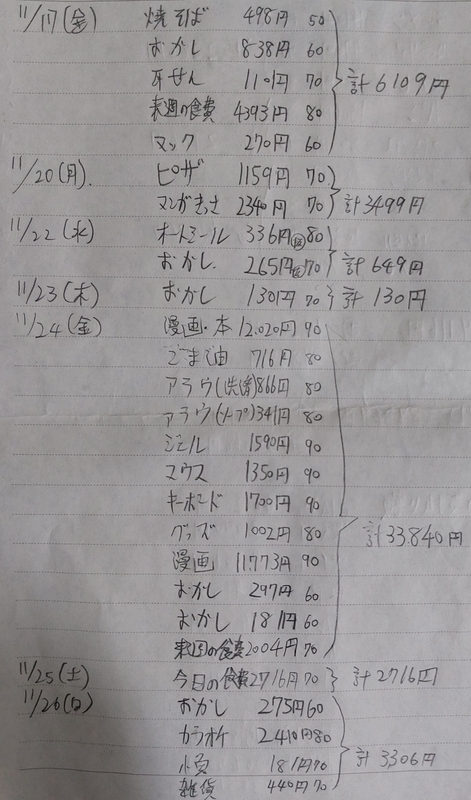 11/17(金) 焼そば 498円 50
おかし 838円 60
耳せん 110円 70 計6109円
来週の食費 4393円 80
マック 270円 60
11/20(月). ピザ 1159円 70
マンガきっさ 2340円 70 計3499円
11/22(水) オートミール 336円 80
おかし. 265円 70 計649円
11/23(木) おかし 130円 70 計130円
11/24(金) 漫画・本 12.020円 90
ごま油 716円 80
アラウ(洗濯)866円 80
アラウ(ソープ)341円 80
ジェル 1590円 90
マウス 1350円 90
キーボード 1700円 90
グッズ 1002円 80 計33.840円
漫画 11773円 90
おかし 297円 60
おかし 181円 60
来週の食費2004円 70
11/25(土) 今日の食費2716円 70 計2716円
11/26(日) おかし 275円60
カラオケ 2.410円80
181円70 計3306円
雑貨 440円 70